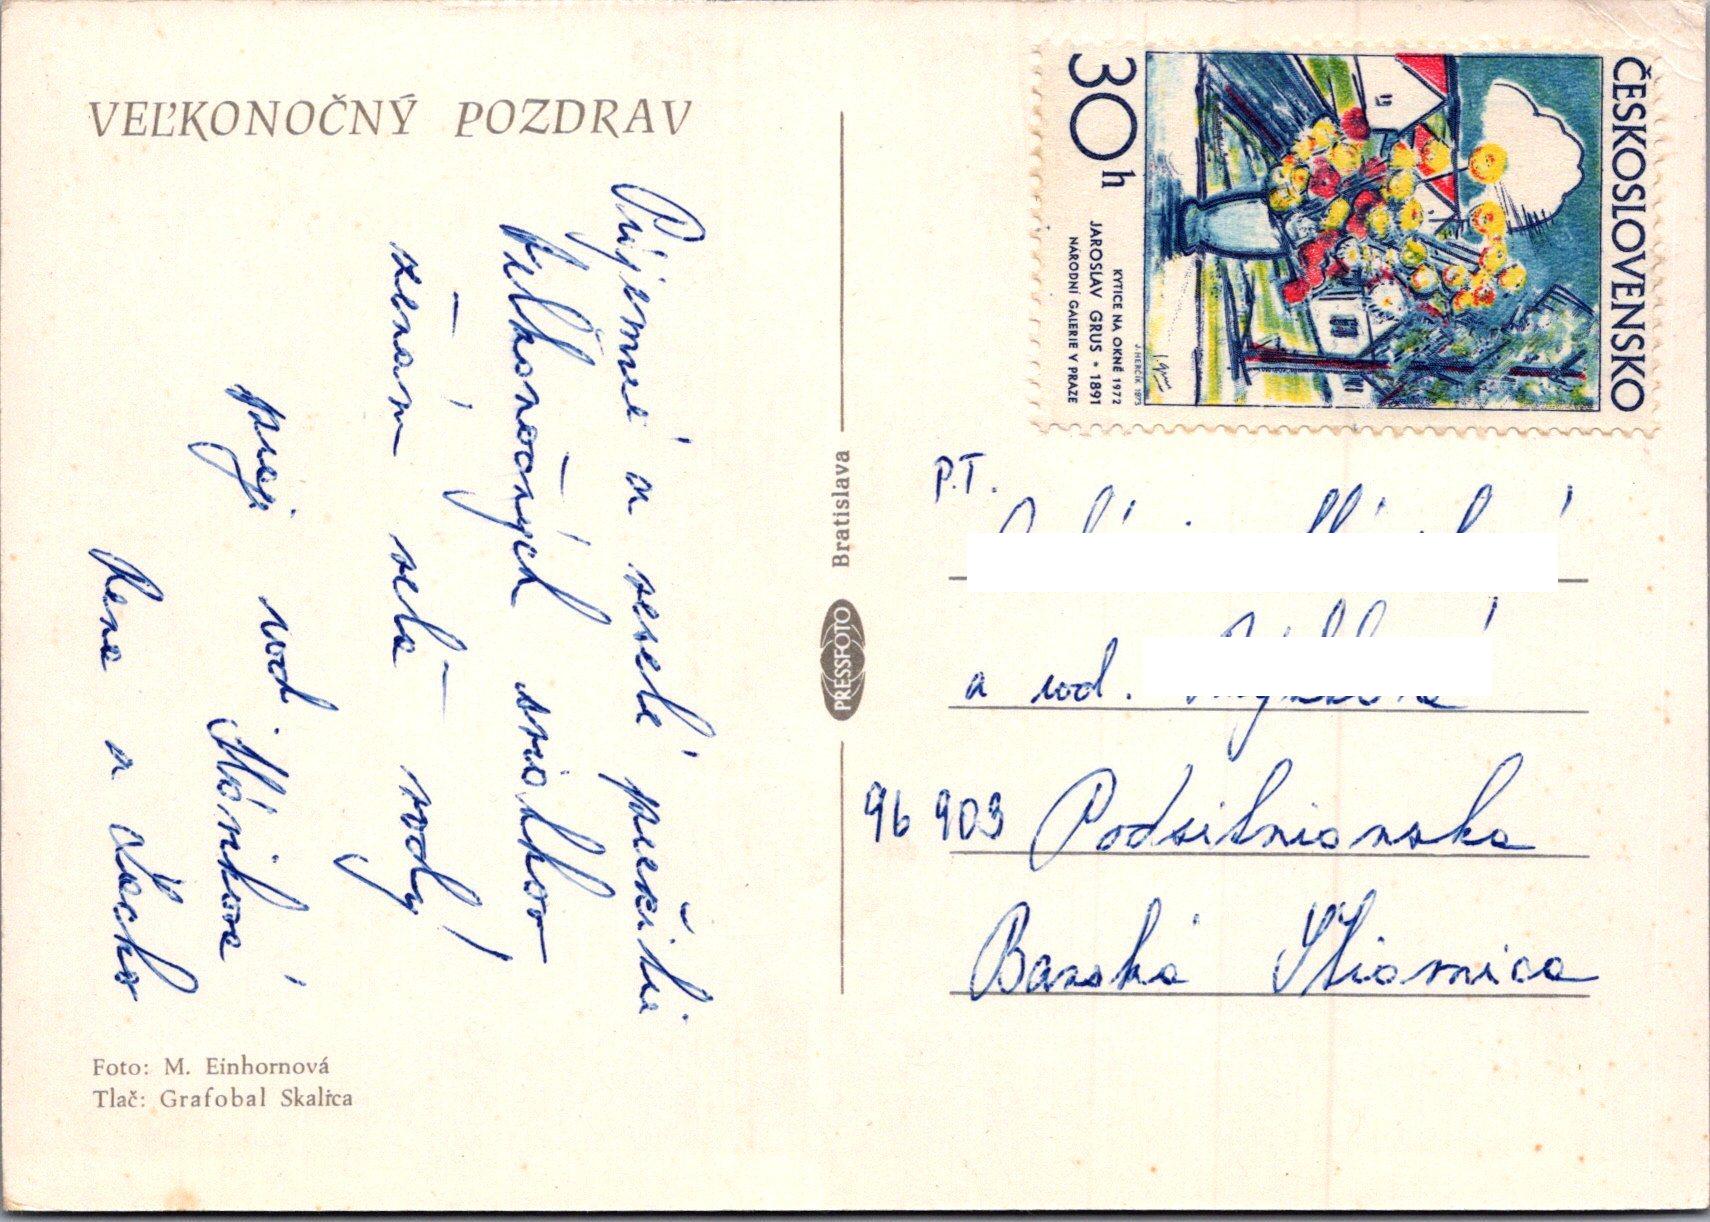 VEĽKONOČNÝ POZDRAV
Príjemné a veselé prežitie
Veľkonočných sviatkov
ženám veľa vody
praje rod. Mórikova
Rena a Lacko
Foto: M. Einhornová
Tlač: Grafobal Skalica
PRESSFOTO Bratislava
ČESKOSLOVENSKO
30 h
KYTICE NA OKNĚ 1972
JAROSLAV GRUS * 1891
NÁRODNÍ GALERIE V PRAZE
J. HERČÍK 1973
P.T.
a rod.
96 903 Podsitnianska
Banská Štiavnica